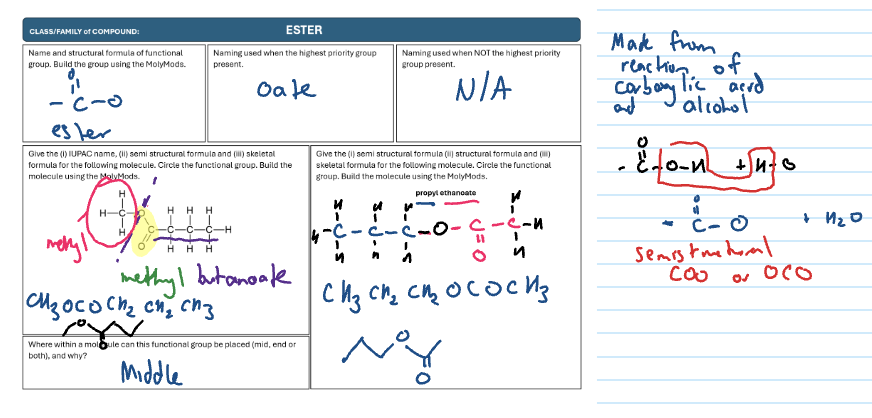 CLASS/FAMILY of COMPOUND: ESTER
Name and structural formula of functional
group. Build the group using the MolyMods.
O
- C - O
ester
Naming used when the highest priority group
present.
oate
Naming used when NOT the highest priority
group present.
N/A
Give the (i) IUPAC name, (ii) semi structural formula and (iii) skeletal
formula for the following molecule. Circle the functional group. Build the
molecule using the MolyMods.
H
H-C-O H H H
H C-C-C-C-H
O H H H
methyl
methyl butanoate
CH3OCOCH2 CH2 CH3
O
O
Where within a molecule can this functional group be placed (mid, end or
both), and why?
Middle
Give the (i) semi structural formula (ii) structural formula and (iii)
skeletal formula for the following molecule. Circle the functional
group. Build the molecule using the MolyMods.
propyl ethanoate
H H H H
H-C-C-C-O-C-C-H
H H H O H
CH3 CH2 CH2 OCOCH3
O
O
Made from
reaction of
carboxylic acid
and alcohol
O
- C - O-H + H-O
O
- C - O + H2O
semistructural
COO or OCO